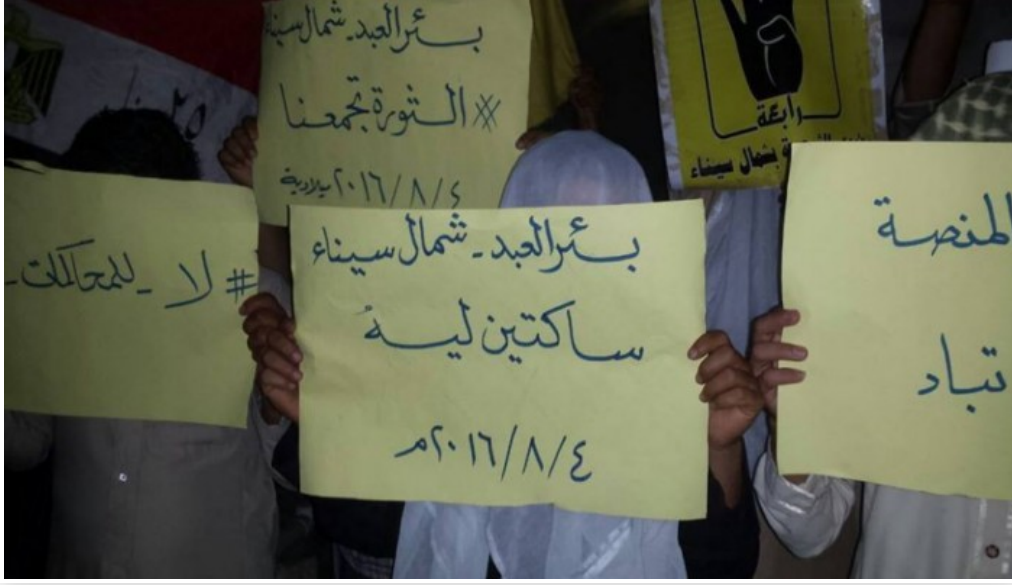 بئر العبد - شمال سيناء
# الثورة تجمعنا
٢٠١٦/٨/٤ ميلادية
رابعة
بشمال سيناء
٢٥
# لا - للمحاكمات -
بئر العبد - شمال سيناء
ساكتين ليه
٢٠١٦/٨/٤م
المنصة
تباد